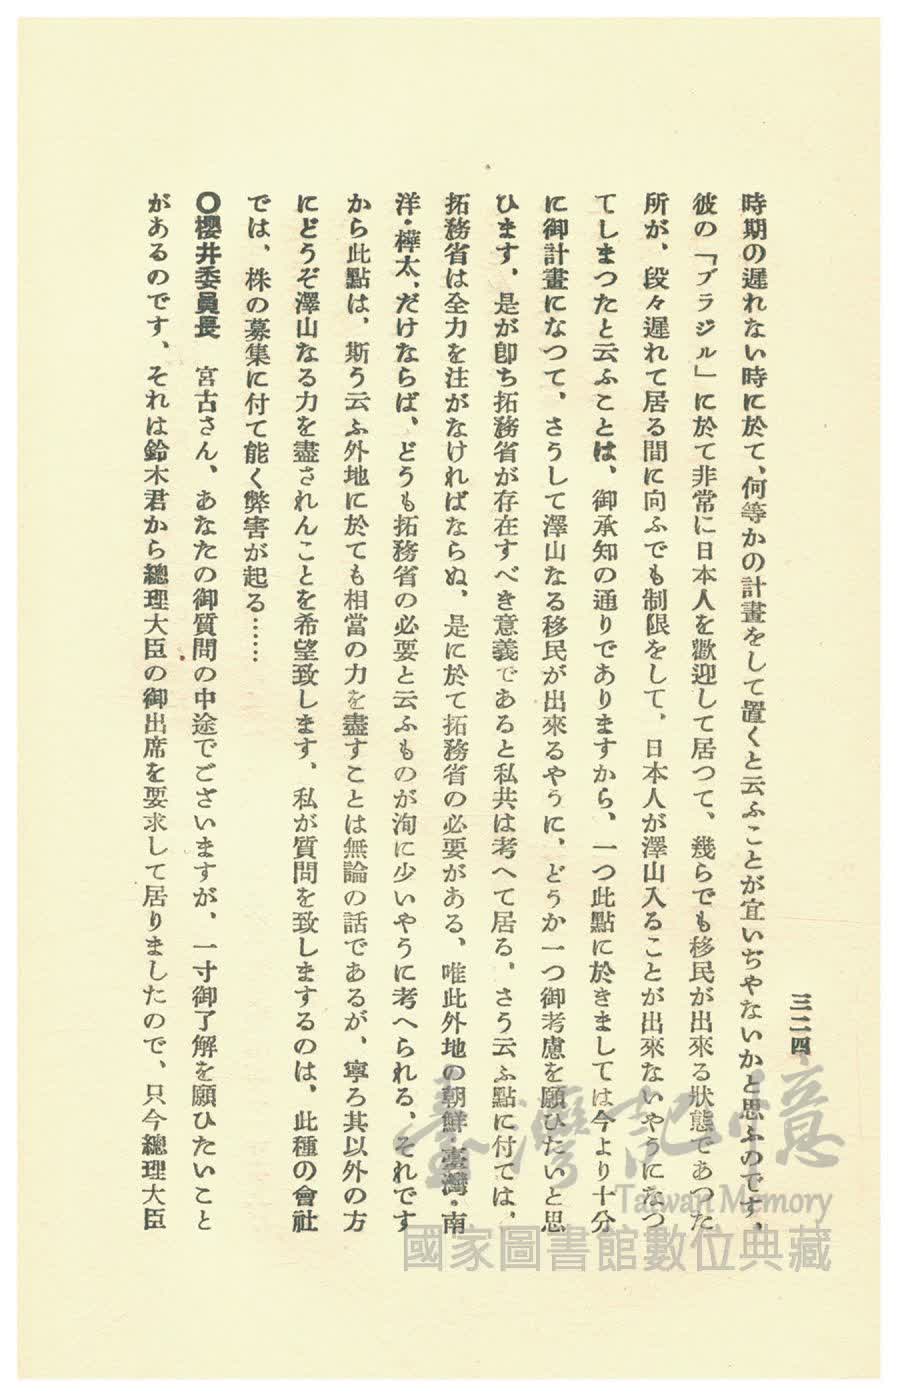 三二四
時期の遲れない時に於て、何等かの計畫をして置くと云ふことが宜いぢやないかと思ふのです、
彼の「ブラジル」に於て非常に日本人を歡迎して居つて、幾らでも移民が出來る狀態であつた
所が、段々遲れて居る間に向ふでも制限をして、日本人が澤山入ることが出來ないやうになつ
てしまつたと云ふことは、御承知の通りでありますから、一つ此點に於きましては今より十分
に御計畫になつて、さうして澤山なる移民が出來るやうに、どうか一つ御考慮を願ひたいと思
ひます、是が卽ち拓務省が存在すべき意義であると私共は考へて居る、さう云ふ點に付ては、
拓務省は全力を注がなければならぬ、是に於て拓務省の必要がある、唯此外地の朝鮮・臺灣・南
洋・樺太、だけならば、どうも拓務省の必要と云ふものが洵に少いやうに考へられる、それです
から此點は、斯う云ふ外地に於ても相當の力を盡すことは無論の話であるが、寧ろ其以外の方
にどうぞ澤山なる力を盡されんことを希望致します、私が質問を致しまするのは、此種の會社
では、株の募集に付て能く弊害が起る……
〇櫻井委員長　宮古さん、あなたの御質問の中途でございますが、一寸御了解を願ひたいこと
があるのです、それは鈴木君から總理大臣の御出席を要求して居りましたので、只今總理大臣
臺灣記憶
Taiwan Memory
國家圖書館數位典藏